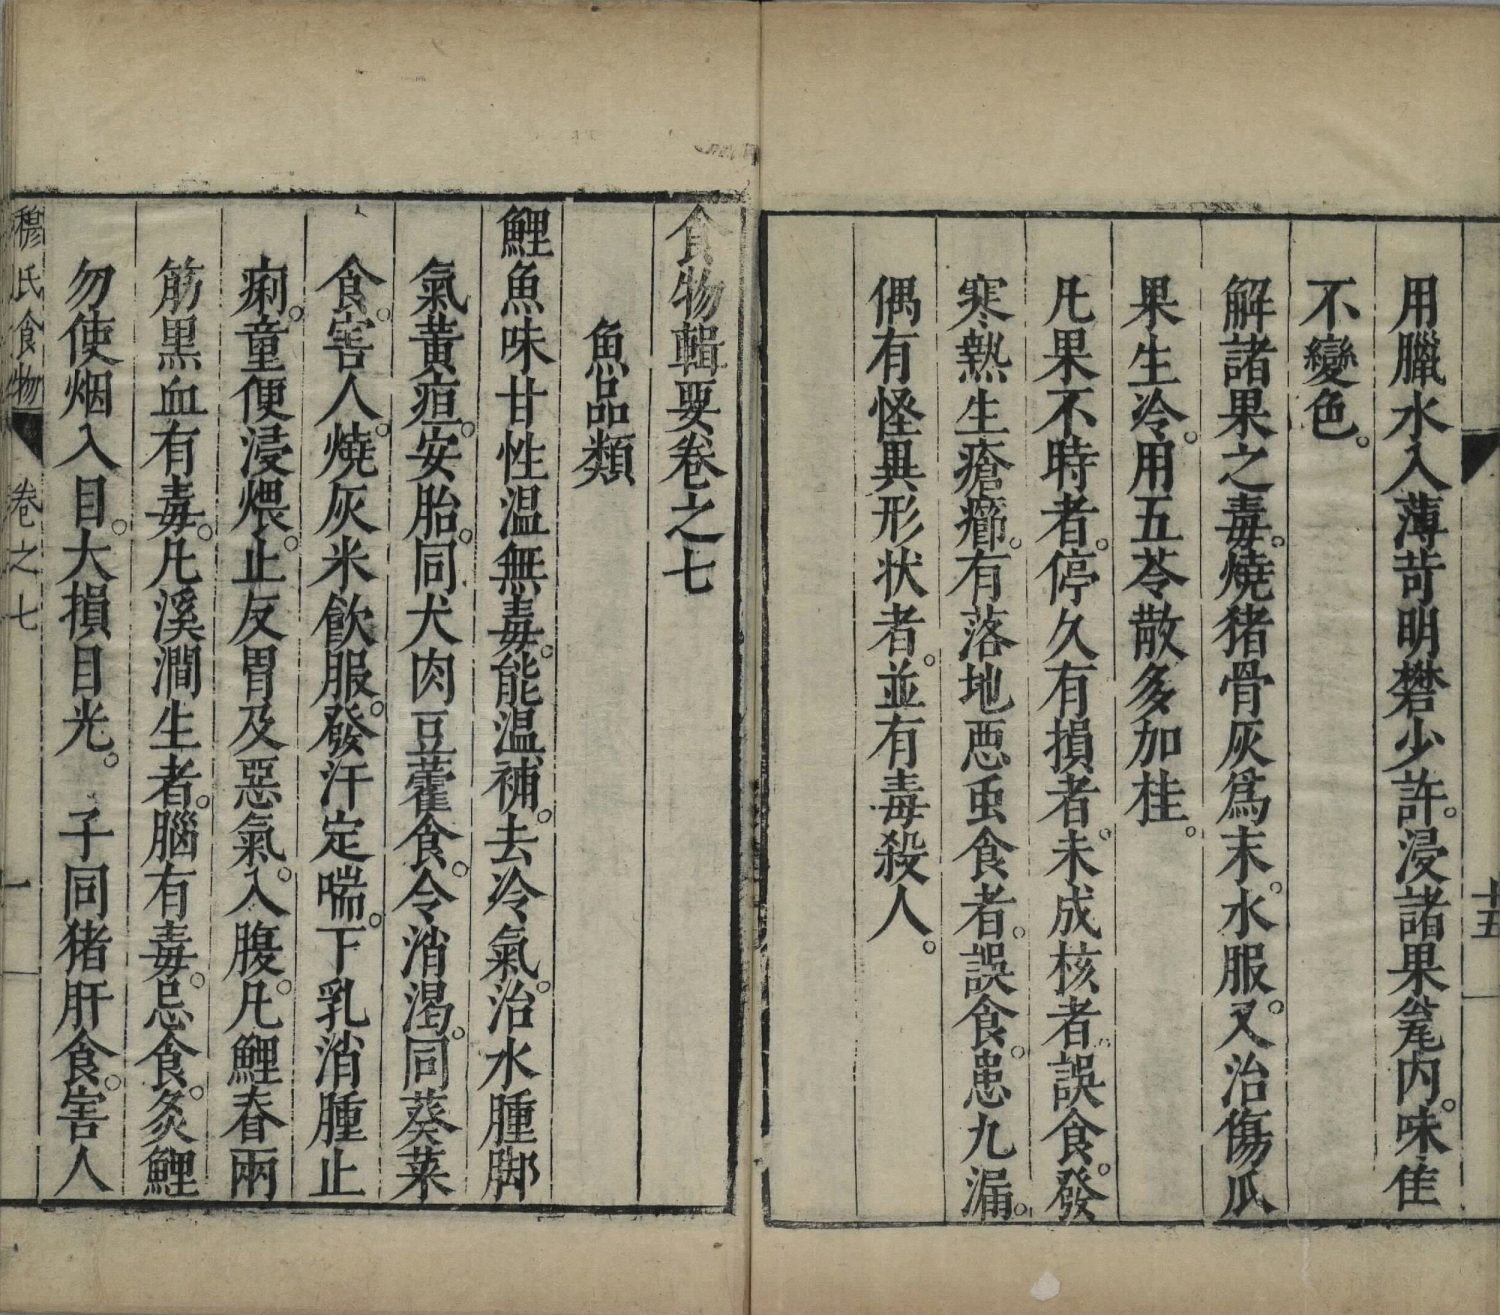 用臘水入薄苛明礬少許。浸諸果瓮内。味佳
不變色。
解諸果之毒。燒猪骨灰爲末。水服。又治傷瓜
果生冷。用五苓散多加桂。
凡果不時者。停久有損者。未成核者。誤食。發
寒熱生瘡癤。有落地惡虫食者。誤食。患九漏。
偶有怪異形状者。並有毒殺人。
十五
食物輯要卷之七
魚品類
鯉魚味甘性温無毒。能温補。去冷氣。治水腫脚
氣黄疸。安胎。同犬肉豆藿食。令消渴。同葵菜
食。害人。燒灰米飲服。發汗定喘。下乳消腫止
痢。童便浸煨。止反胃及惡氣。入腹。凡鯉脊兩
筋黑血有毒。凡溪澗生者。腦有毒。忌食。炙鯉
勿使烟入目。大損目光。 子同猪肝食。害人
穆氏食物 卷之七 一